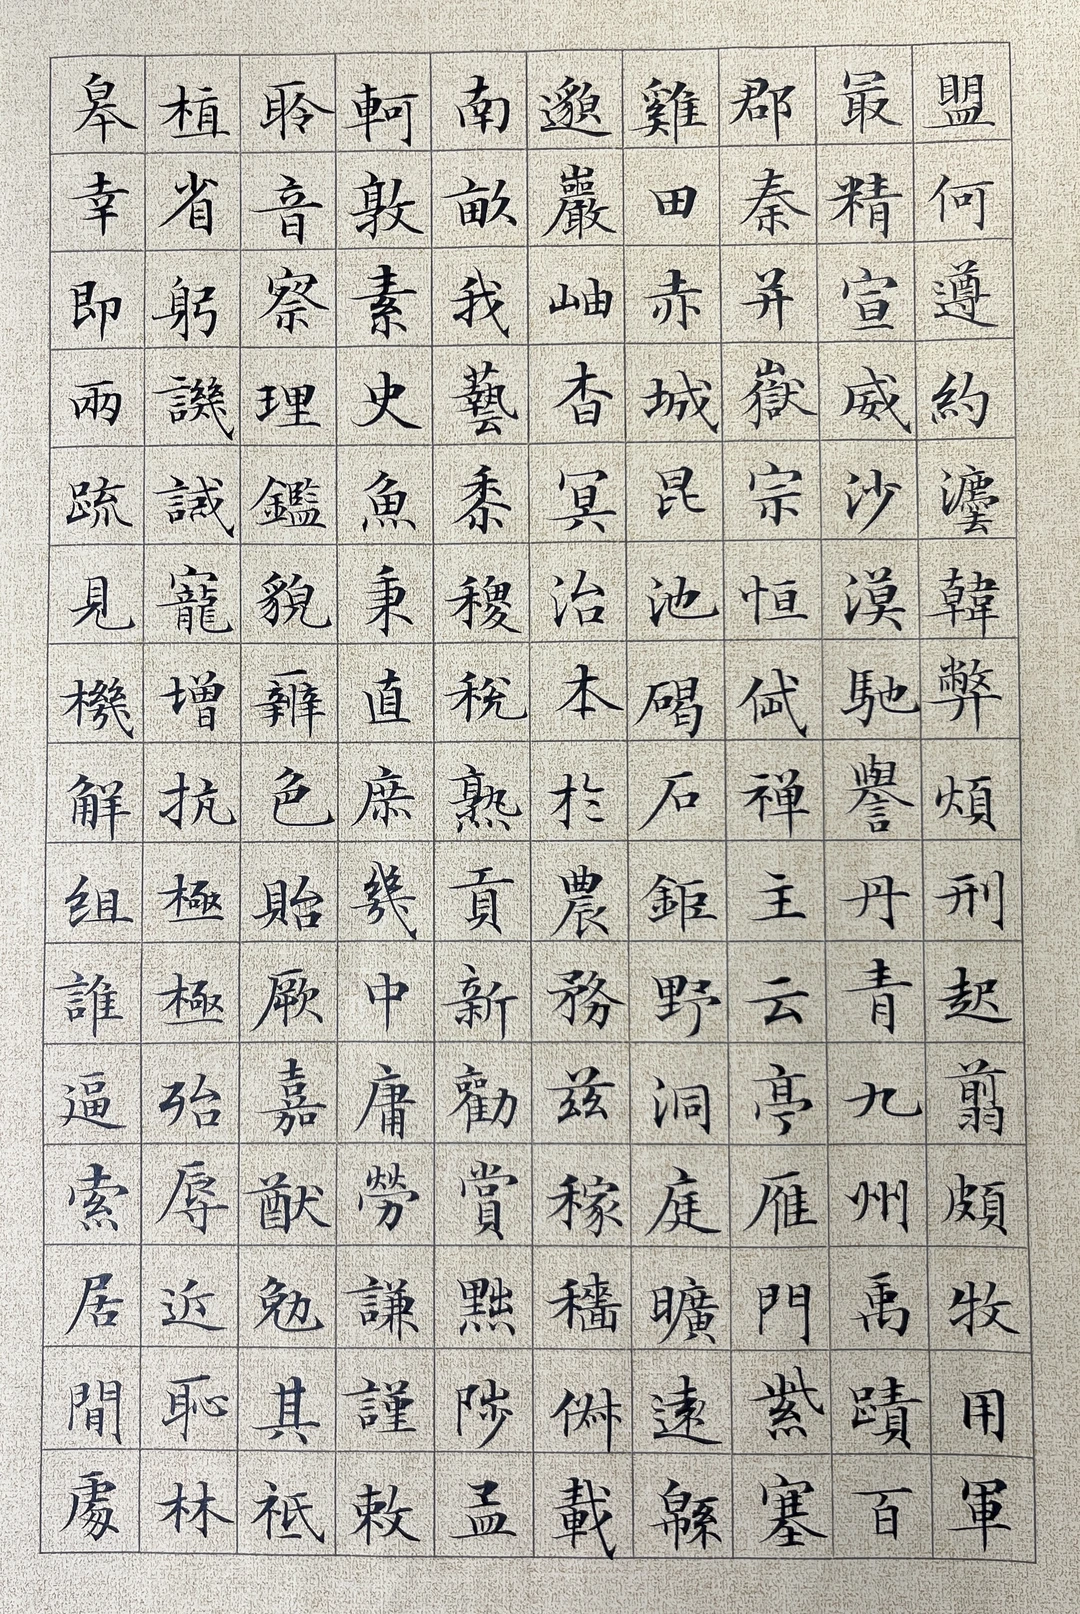 盟何遵約灋韓弊煩刑起翦頗牧用軍
最精宣威沙漠馳譽丹青九州禹蹟百
郡秦并嶽宗恒岱禅主云亭雁門紫塞
雞田赤城昆池碣石鉅野洞庭曠遠緜
邈巖岫杳冥治本於農務兹稼穡俶載
南畝我藝黍稷稅熟貢新勸賞黜陟孟
軻敦素史魚秉直庶幾中庸勞謙謹敕
聆音察理鑑貌辨色貽厥嘉猷勉其祗
植省躬譏誡寵增抗極極殆辱近恥林
皋幸即兩疏見機解組誰逼索居閒處